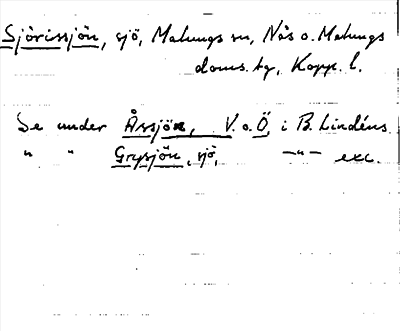 Sjörissjön, sjö, Malungs sn, Nås o. Malungs
doms. hg, Kopp. l.
Se under Årsjön, V. o. Ö, i B. Lindéns
" " Grysjön, sjö, —"— exc.